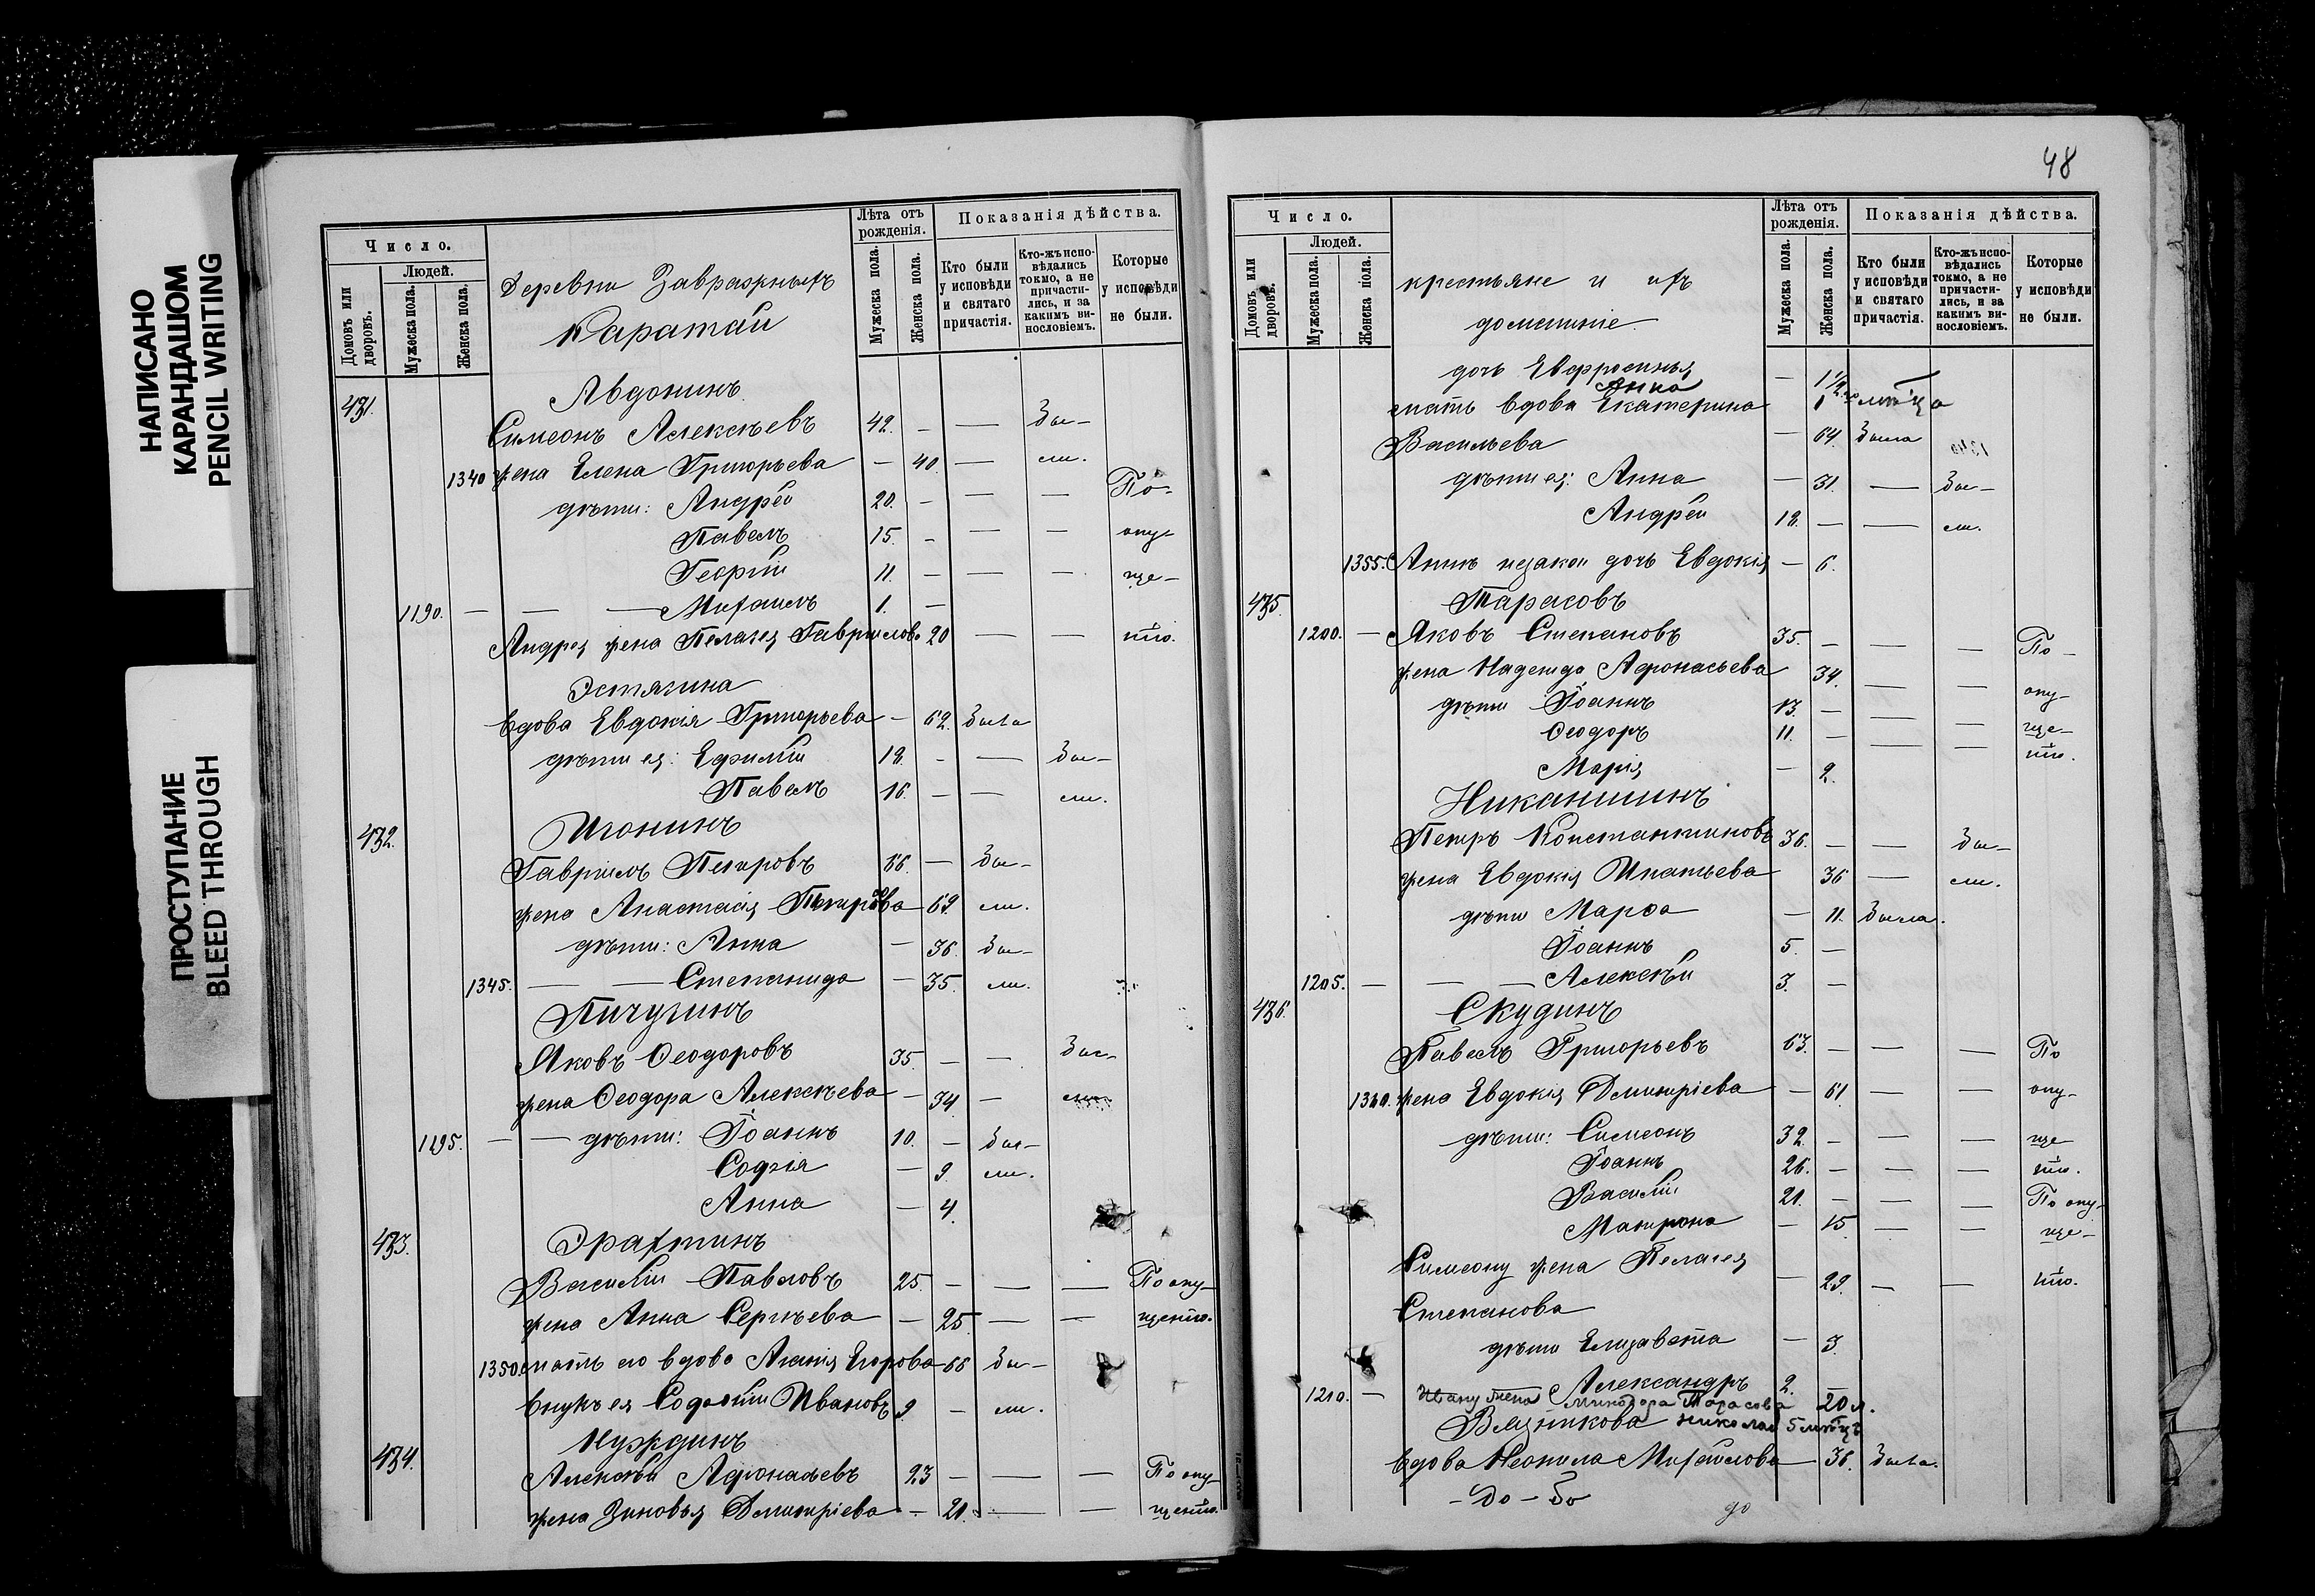 НАПИСАНО
КАРАНДАШОМ
PENCIL WRITING
ПРОСТУПАНИЕ
BLEED THROUGH
Число.
Людей.
Домовъ или дворовъ.
Мужеска пола.
Женска пола.
Деревни Завражныхъ
Каратаи
Лѣта отъ рожденія.
Мужеска пола.
Женска пола.
Показанія дѣйства.
Кто были у исповѣди и святаго причастія.
Кто-жъ исповѣдались токмо, а не причастились, и за какимъ винословіемъ.
Которые у исповѣди не были.
431. Авдонинъ
Симеонъ Алексѣевъ 42. — — Бы-
1340 жена Елена Григорьева — 40. — ли.
дѣти: Андрей 20. — — — По-
Павелъ 15. — — — опу-
Георгій 11. — — — ще-
1190. — — — Михаилъ 1. —
Андрея жена Пелагея Гаврилова 20 — — нію.
Эстягина
вдова Евдокія Григорьева — 62. Была
дѣти ея: Ефимій 18. — — Бы-
Павелъ 16. — — ли.
432. Игонинъ
Гавріилъ Петровъ 66. — Бы-
жена Анастасія Петрова 69. ли.
дѣти: Анна — 36. Бы-
1345. — — Степанида — 35. ли.
Пичугинъ
Яковъ Ѳеодоровъ 35. — — Бы-
жена Ѳеодора Алексѣева — 34. — ли.
1195. — — дѣти: Іоаннъ 10. — Бы-
Софія — 9 ли.
Анна — 4.
433. Драхтинъ
Василій Павловъ 25. — — — По опу-
жена Анна Сергѣева — 25. — — щенію.
1350. мать его вдова Агафія Егорова 66 Бы-
внукъ ея Иванов 9 — ли.
434. Нуждинъ
Алексѣй Афонасьевъ 23 — — — По опу-
жена Зиновья Дмитріева — 21. — — щенію.
48
Число.
Людей.
Домовъ или дворовъ.
Мужеска пола.
Женска пола.
крестьяне и ихъ
домашніе.
Лѣта отъ рожденія.
Мужеска пола.
Женска пола.
Показанія дѣйства.
Кто были у исповѣди и святаго причастія.
Кто-жъ исповѣдались токмо, а не причастились, и за какимъ винословіемъ.
Которые у исповѣди не были.
дочь Евфросинья — 1 1/2
Анна
мать вдова Екатерина
Васильева — 64. Была
дѣти ея: Анна — 31. — Бы-
Андрей 18. — — ли.
1355. Анны незакон дочь Евдокія — 6.
435. Тарасовъ
1200. — Яковъ Степановъ 35. — — — По-
жена Надежда Афонасьева 34. — — опу-
дѣти Іоаннъ 13. — — — ще-
Ѳеодоръ 11. — — — нію.
Марія — 2.
Никаншинъ
Петръ Константиновъ 36. — — Бы-
жена Евдокія Игнатьева 36 — ли.
дѣти Марѳа — 11. Была.
Іоаннъ 5. —
1205. — — — Алексѣй 3. —
436. Скудинъ
Павелъ Григорьевъ 63. — — — По
1360. жена Евдокія Дмитріева — 61 — — опу-
дѣти: Симеонъ 32. — — — ще
Іоаннъ 26. — — — нію.
Василій 21. — — — По опу-
Матрона — 15 — — ще-
Симеону жена Пелагея
Степанова — 29. — — нію.
дѣти Елизавета — 3.
1210. — Александръ 2. —
Ивану жена Минодора Тарасова 20 л.
Вязникова Николай 5 мѣсяцъ
вдова Неонила Михайлова — 36. Была.